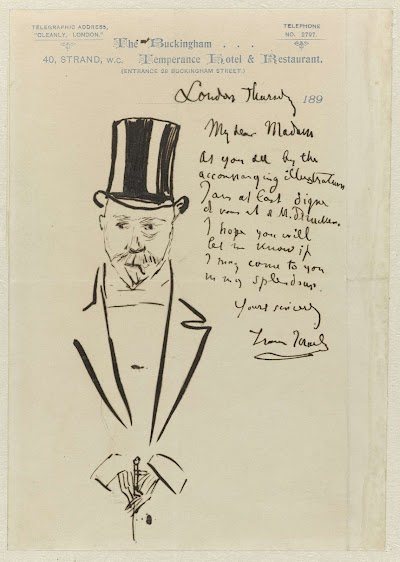 TELEGRAPHIC ADDRESS,
"CLEANLY, LONDON."
TELEPHONE
NO. 2797.
The Buckingham . . .
40, STRAND, W.C. Temperance Hotel & Restaurant.
(ENTRANCE 28 BUCKINGHAM STREET)
London Thursdy 189
My dear Madam
As you see by the
accompanying illustration
I am at last digne
de vous et de M.
I hope you will
let me know if
I may come to you
in my splendour.
Yours sincerely